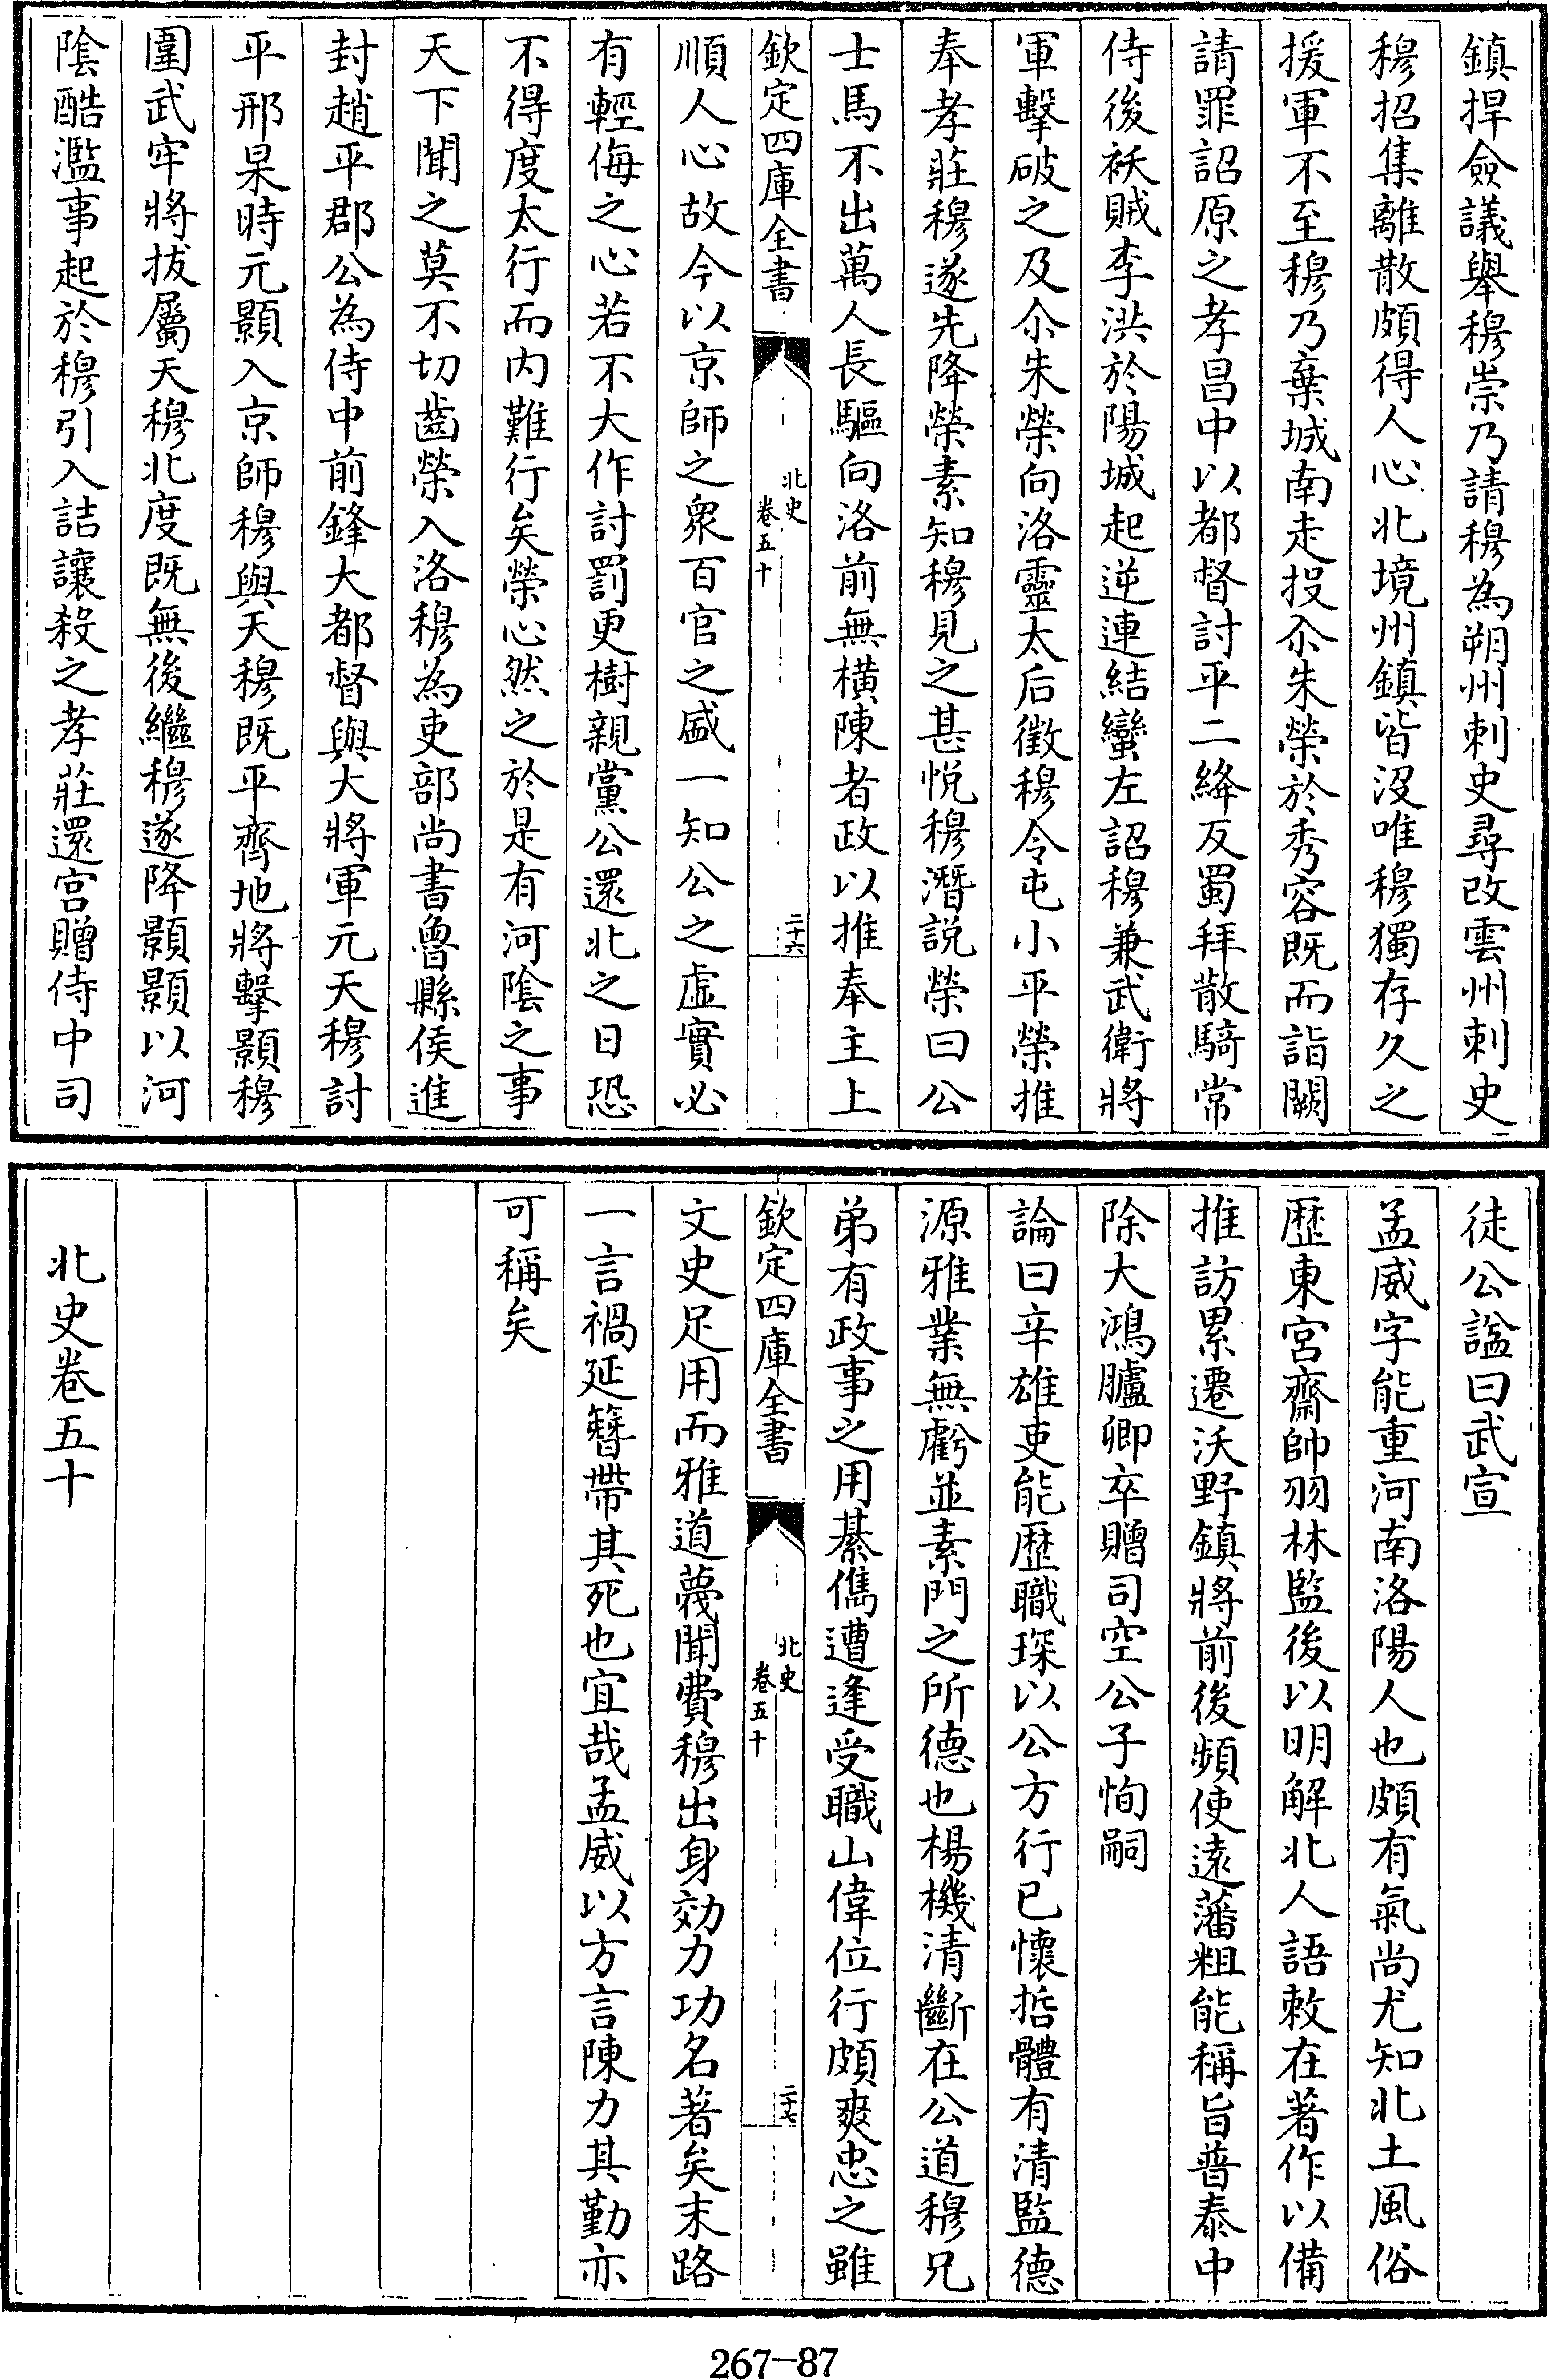 鎮捍僉議舉穆崇乃請穆為朔州刺史尋改雲州刺史
穆招集離散頗得人心北境州鎮皆没唯穆獨存久之
援軍不至穆乃棄城南走投尒朱榮於秀容既而詣闕
請罪詔原之孝昌中以都督討平二絳反蜀拜散騎常
侍後祅賊李洪於陽城起逆連結蠻左詔穆兼武衛將
軍擊破之及尒朱榮向洛靈太后徵穆令屯小平榮推
奉孝莊穆遂先降榮素知穆見之甚悦穆潛説榮曰公
士馬不出萬人長驅向洛前無横陳者政以推奉主上
欽定四庫全書
北史
卷五十
二十六
順人心故今以京師之衆百官之盛一知公之虛實必
有輕侮之心若不大作討罰更樹親黨公還北之日恐
不得度太行而内難行矣榮心然之於是有河隂之事
天下聞之莫不切齒榮入洛穆為吏部尚書魯縣侯進
封趙平郡公為侍中前鋒大都督與大將軍元天穆討
平邢杲時元顥入京師穆與天穆既平齊地將擊顥穆
圍武牢將拔屬天穆北度既無後繼穆遂降顥顥以河
隂酷濫事起於穆引入詰讓殺之孝莊還宫贈侍中司
徒公諡曰武宣
孟威字能重河南洛陽人也頗有氣尚尤知北土風俗
歴東宫齋帥羽林監後以明解北人語敕在著作以備
推訪累遷沃野鎮將前後頻使遠藩粗能稱旨普泰中
除大鴻臚卿卒贈司空公子恂嗣
論曰辛雄吏能歴職琛以公方行已懷哲體有清監德
源雅業無虧並素門之所德也楊機清斷在公道穆兄
弟有政事之用綦儁遭逢受職山偉位行頗爽忠之雖
欽定四庫全書
北史
卷五十
二十七
文史足用而雅道蔑聞費穆出身効力功名著矣末路
一言禍延簪帶其死也宜哉孟威以方言陳力其勤亦
可稱矣
北史卷五十
267-87